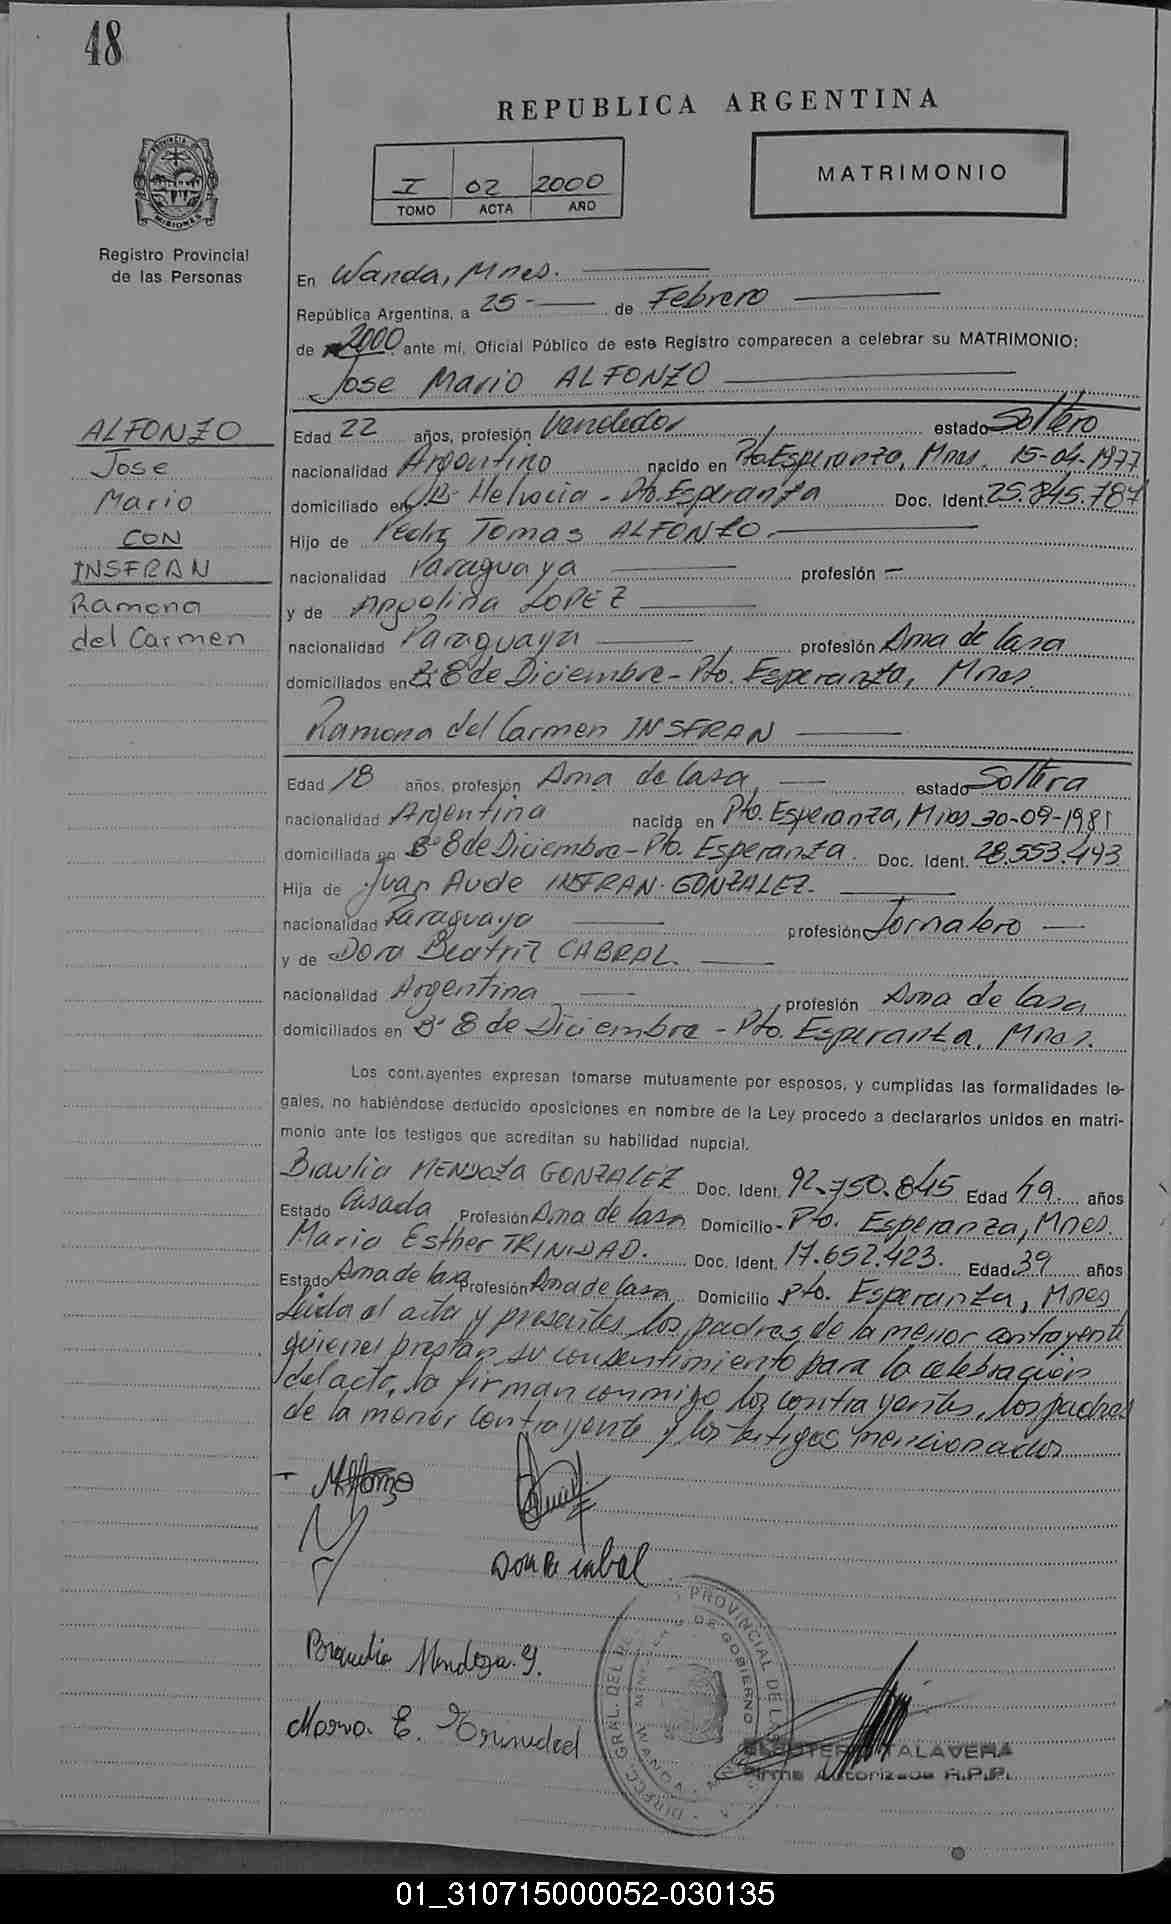 48
REPUBLICA ARGENTINA
I 02 2000
TOMO ACTA AÑO
MATRIMONIO
PROVINCIA DE
MISIONES
Registro Provincial
de las Personas
En Wanda, Mnes.
República Argentina, a 25 de Febrero
de 2000 ante mí, Oficial Público de este Registro comparecen a celebrar su MATRIMONIO:
Jose Mario ALFONZO
ALFONZO
Jose
Mario
CON
INSFRAN
Ramona
del Carmen
Edad 22 años, profesión Vendedor estado Soltero
nacionalidad Argentino nacido en Pto. Esperanza, Mnes. 15-04-1977
domiciliado en Helvecia - Pto. Esperanza Doc. Ident. 25.845.787
Hijo de Pedro Tomas ALFONZO
nacionalidad Paraguaya profesión —
y de Angelina LOPEZ
nacionalidad Paraguaya profesión Ama de Casa
domiciliados en Bº 8 de Diciembre - Pto. Esperanza, Mnes.
Ramona del Carmen INSFRAN
Edad 18 años, profesión Ama de Casa estado Soltera
nacionalidad Argentina nacida en Pto. Esperanza, Mnes. 30-09-1981
domiciliada en Bº 8 de Diciembre - Pto. Esperanza. Doc. Ident. 28.553.493
Hija de Juan Aude INSFRAN GONZALEZ.
nacionalidad Paraguayo profesión Jornalero
y de Dora Beatriz CABRAL.
nacionalidad Argentina profesión Ama de Casa
domiciliados en Bº 8 de Diciembre - Pto. Esperanza, Mnes.
Los contrayentes expresan tomarse mutuamente por esposos, y cumplidas las formalidades le-
gales, no habiéndose deducido oposiciones en nombre de la Ley procedo a declararlos unidos en matri-
monio ante los testigos que acreditan su habilidad nupcial.
Braulia MENDOZA GONZALEZ Doc. Ident. 92.750.845 Edad 49 años
Estado Casada Profesión Ama de Casa Domicilio - Pto. Esperanza, Mnes.
Maria Esther TRINIDAD. Doc. Ident. 17.652.423. Edad 39 años
Estado Ama de Casa Profesión Ama de Casa Domicilio Pto. Esperanza, Mnes
Leida el acta y presentes los padres de la menor contrayente
quienes prestan su consentimiento para la celebración
del acto, la firman conmigo los contrayentes, los padres
de la menor contrayente y los testigos mencionados
Alfonzo
Braulia Mendoza. G.
Maria. E. Trinidad
PROVINCIAL DE LAS
DE GOBIERNO
WANDA
TALAVERA
Firma Autorizada R.P.P.
01_310715000052-030135